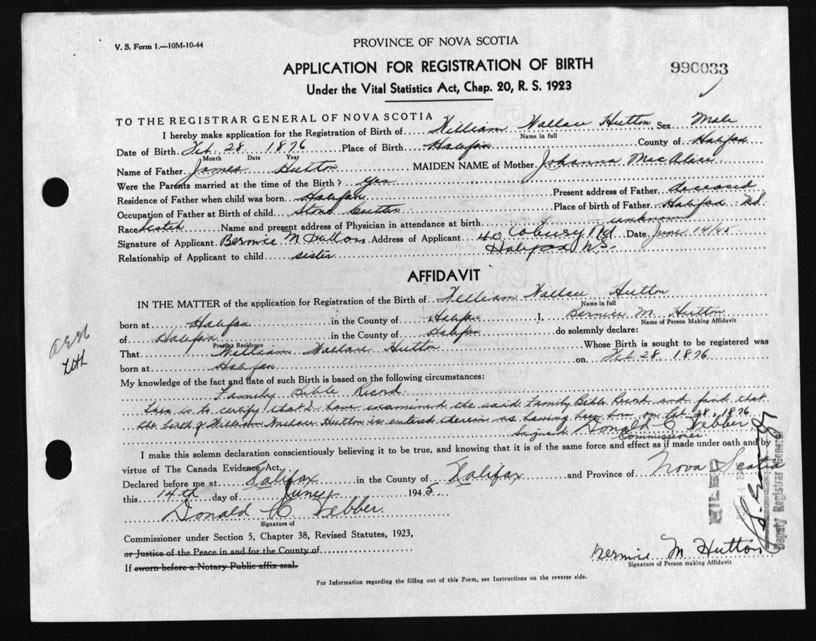 V. S. Form 1.—10M-10-44
PROVINCE OF NOVA SCOTIA
APPLICATION FOR REGISTRATION OF BIRTH
990033
Under the Vital Statistics Act, Chap. 20, R. S. 1923
TO THE REGISTRAR GENERAL OF NOVA SCOTIA
I hereby make application for the Registration of Birth of William Wallace Hutton, Sex Male
Name in full
Date of Birth Feb. 28 1876 Place of Birth Halifax County of Halifax
Month Date Year
Name of Father James Hutton MAIDEN NAME of Mother Johanna
Were the Parents married at the time of the Birth? Yes
Residence of Father when child was born Halifax Present address of Father deceased
Occupation of Father at Birth of child Stone Cutter Place of birth of Father Halifax N.S.
Race Scotch Name and present address of Physician in attendance at birth unknown
Signature of Applicant Bernice M Hutton Address of Applicant Coburg Rd Date June 14/45
Halifax N.S.
Relationship of Applicant to child sister
AFFIDAVIT
IN THE MATTER of the application for Registration of the Birth of William Wallace Hutton
Name in full
born at Halifax in the County of Halifax I, Bernice M. Hutton
Name of Person Making Affidavit
of Halifax in the County of Halifax do solemnly declare:
Present Residence
That William Wallace Hutton Whose Birth is sought to be registered was
born at Halifax on Feb 28 1876
My knowledge of the fact and date of such Birth is based on the following circumstances:
Family Bible Record
This is to certify that I have examined the said Family Bible Record and find that
the birth of William Wallace Hutton is entered therein as having been born on Feb 28, 1876
Signed Donald C Webber
Commissioner
I make this solemn declaration conscientiously believing it to be true, and knowing that it is of the same force and effect as if made under oath and by
virtue of The Canada Evidence Act.
Declared before me at Halifax in the County of Halifax and Province of Nova Scotia
this 14th day of June 1945
Donald C Webber
Signature of
Commissioner under Section 5, Chapter 38, Revised Statutes, 1923,
or Justice of the Peace in and for the County of
If sworn before a Notary Public affix seal.
Bernice M. Hutton
Signature of Person making Affidavit
For Information regarding the filling out of this Form, see Instructions on the reverse side.
Deputy Registrar General